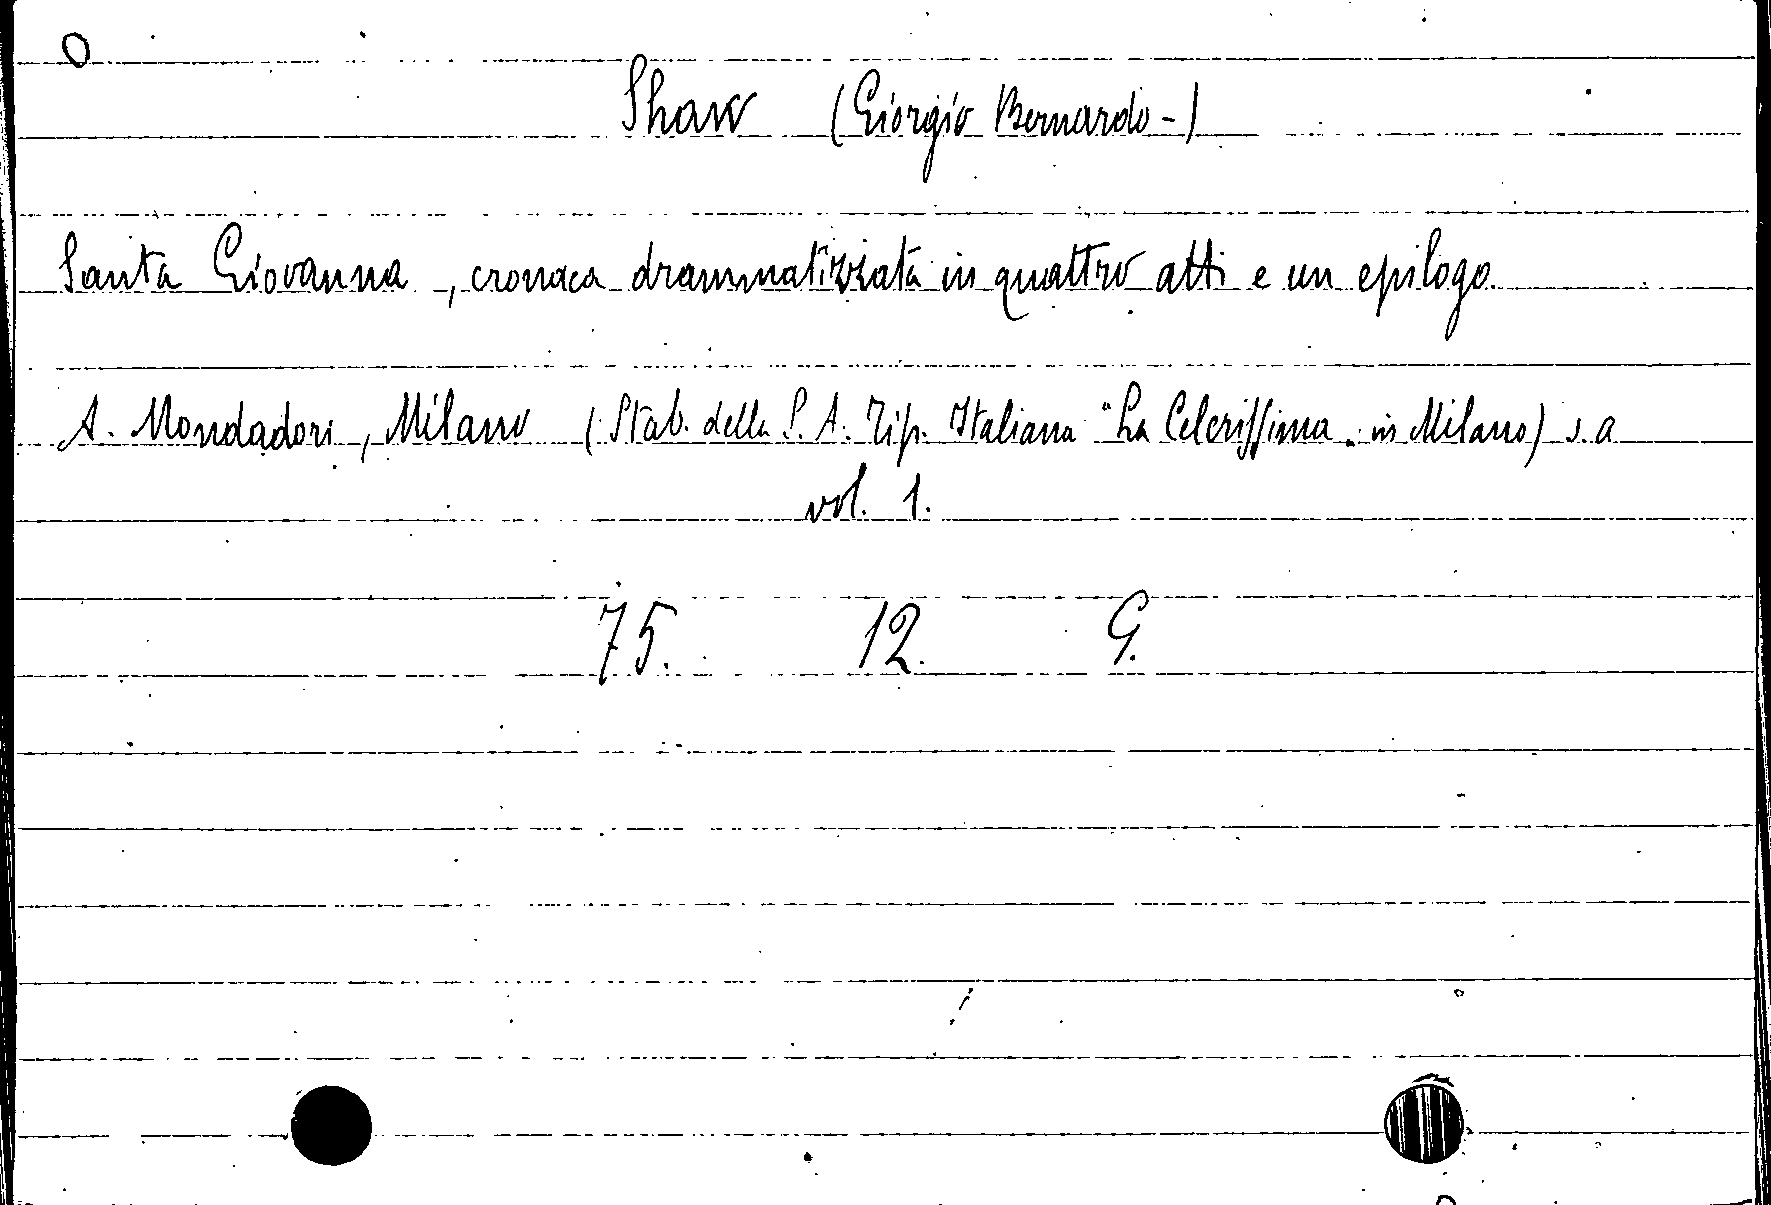 O
Shaw (Giorgio Bernardo-)
Santa Giovanna, cronaca drammatizzata in quattro atti e un epilogo.
A. Mondadori, Milano (Stab. della S. A. Tip. Italiana "La Celerissima" in Milano) s. a
vol. 1.
75. 12. G.